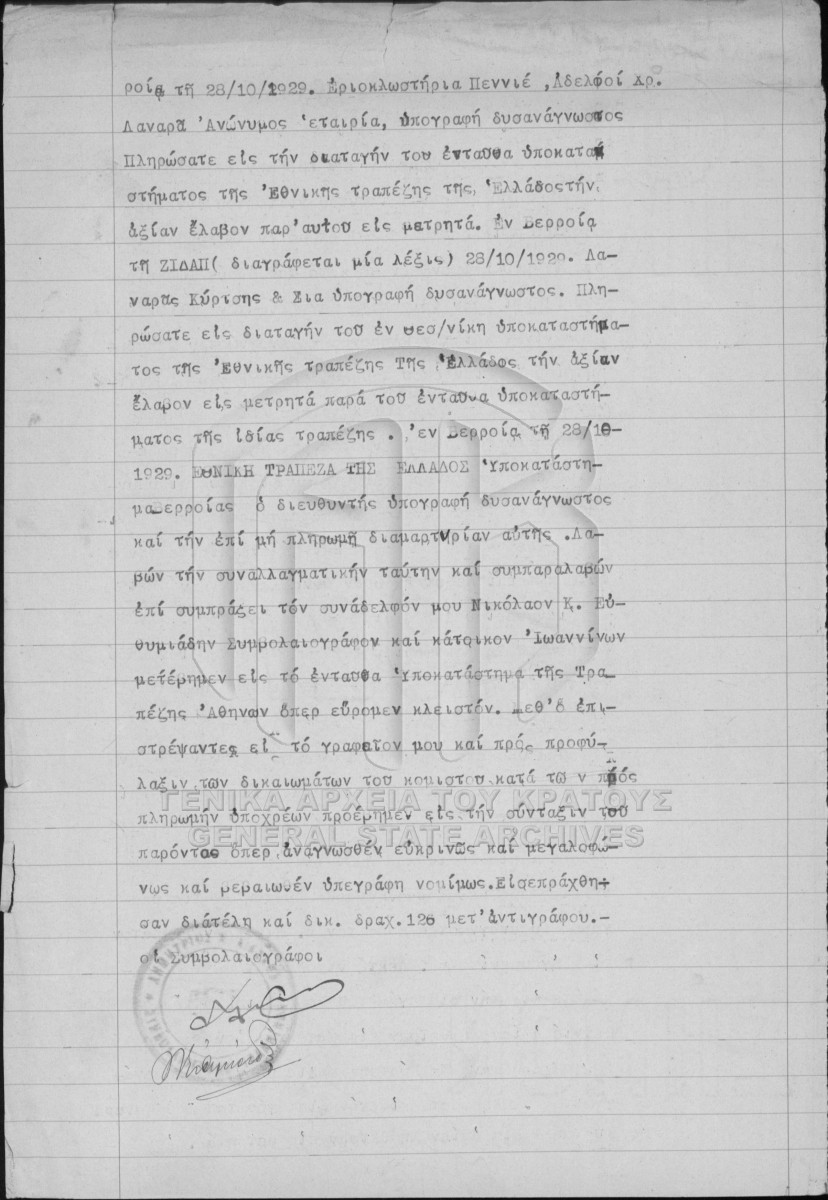 ροίᾳ τῇ 28/10/1929. Ἐριοκλωστήρια Πεννιέ ,Ἀδελφοί Χρ.
Λαναρᾶ Ἀνώνυμος Ἑταιρία, ὑπογραφή δυσανάγνωστος
Πληρώσατε εἰς τήν διαταγήν τοῦ ἐνταῦθα ὑποκατα
στήματος τῆς Ἐθνικῆς τραπέζης τῆς Ἑλλάδοςτήν
ἀξίαν ἔλαβον παρ'αὐτοῦ εἰς μετρητά. Ἐν Βερροίᾳ
τῇ ΖΙΔΑΠ( διαγράφεται μία λέξις) 28/10/1929. Λα-
ναρᾶς Κύρτσης & Σια ὑπογραφή δυσανάγνωστος. Πλη-
ρώσατε εἰς διαταγήν τοῦ ἐν Θεσ/νίκη ὑποκαταστήμα-
τος τῆς Ἐθνικῆς τραπέζης Τῆς Ἑλλάδος τήν ἀξίαν
ἔλαβον εἰς μετρητά παρά τοῦ ἐνταῦθα ὑποκαταστή-
ματος τῆς ἰδίας τραπέζης . Ἐν Βερροίᾳ τῇ 28/10-
1929. ΕΘΝΙΚΗ ΤΡΑΠΕΖΑ ΤΗΣ ΕΛΛΑΔΟΣ Ὑποκατάστη-
μαΒερροίας ὁ διευθυντής ὑπογραφή δυσανάγνωστος
καί τήν ἐπί μή πληρωμῇ διαμαρτυρίαν αὐτῆς .Λα-
βών τήν συναλλαγματικήν ταύτην καί συμπαραλαβών
ἐπί συμπράξει τόν συνάδελφόν μου Νικόλαον Κ. Εὐ-
θυμιάδην Συμβολαιογράφον καί κάτοικον Ἰωαννίνων
μετέβημεν εἰς τό ἐνταῦθα Ὑποκατάστημα τῆς Τρα-
πέζης Ἀθηνῶν ὅπερ εὕρομεν κλειστόν. Μεθ'ὅ ἐπι-
στρέψαντες εἰ τό γραφεῖον μου καί πρός προφύ-
λαξιν τῶν δικαιωμάτων τοῦ κομιστοῦ κατά τῶ ν πρός
πληρωμήν ὑποχρέων προέβημεν εἰς τήν σύνταξιν τοῦ
παρόντος ὅπερ ἀναγνωσθέν εὐκρινῶς καί μεγαλοφώ-
νως καί βεβαιωθέν ὑπεγράφη νομίμως.Εἰσεπράχθη-
σαν διάτέλη καί δικ. δραχ.126 μετ'ἀντιγράφου.-
οἱ Συμβολαιογράφοι
ΓΕΝΙΚΑ ΑΡΧΕΙΑ ΤΟΥ ΚΡΑΤΟΥΣ
GENERAL STATE ARCHIVES